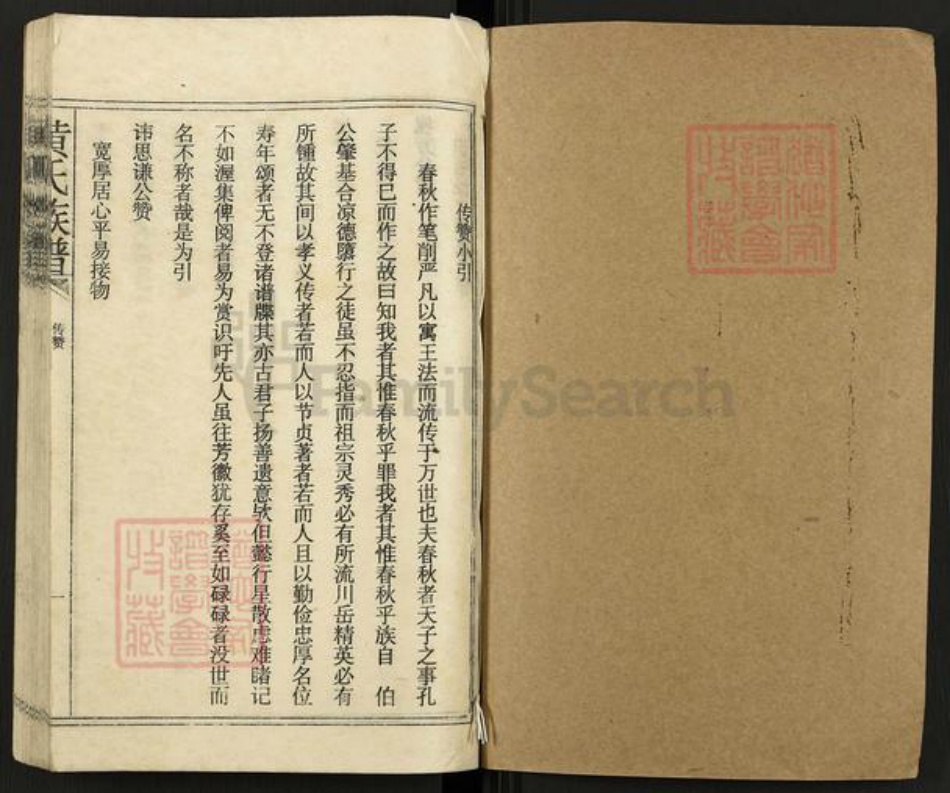 传赞小引
春秋作笔削严凡以寓王法而流传于万世也夫春秋者天子之事孔
子不得已而作之故曰知我者其惟春秋乎罪我者其惟春秋乎族自　伯
公肇基合凉德隳行之徒虽不忍指而祖宗灵秀必有所流川岳精英必有
所锺故其间以孝义传者若而人以节贞著者若而人且以勤俭忠厚名位
寿年颂者无不登诸谱牒其亦古君子扬善遗意欤但懿行星散虑难睹记
不如渥集俾阅者易为赏识吁先人虽往芳徽犹存奚至如碌碌者没世而
名不称者哉是为引
讳思谦公赞
宽厚居心平易接物
黄氏族谱
传赞
一
FamilySearch